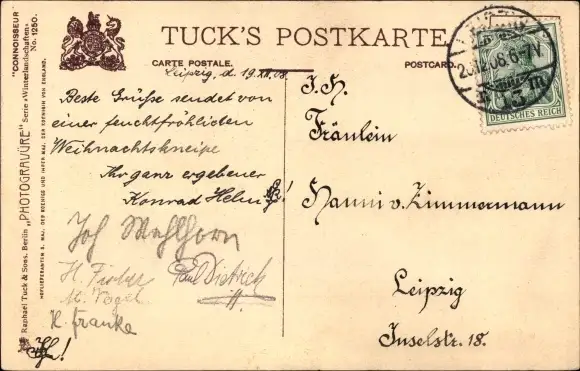 "CONNOISSEUR"
No. 1250.
TUCK'S POSTKARTE
CARTE POSTALE.
POSTCARD.
Raphael Tuck & Sons. Berlin „PHOTOGRAVÜRE" Serie »Winterlandschaften«
HOFLIEFERANTEN S. MAJ. DES KOENIGS UND IHRER MAJ. DER KOENIGIN VON ENGLAND.
Leipzig, d. 19.XII.08.
Beste Grüße sendet von
einer feuchtfröhlichen
Weihnachtskneipe
Ihr ganz ergebener
Konrad Helm
Joh Mehlhorn
H. Fischer
Paul Dietrich
M. Vogel
K. Franke
I. H.
Fräulein
Hanni v. Zimmermann
Leipzig
Inselstr. 18.
DEUTSCHES REICH
6-7V